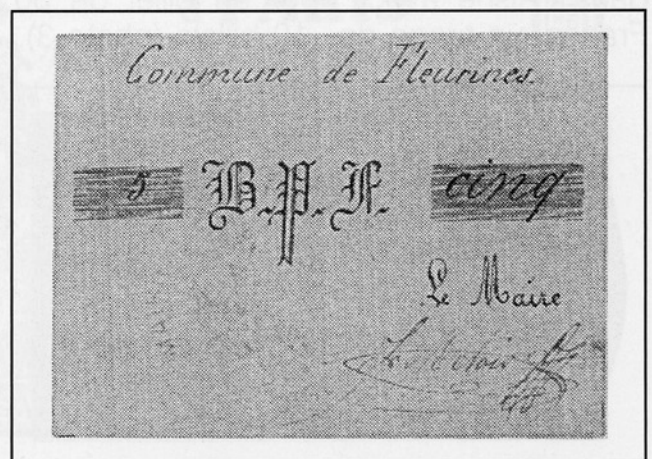 Commune de Fleurines.
5 B.P.F. cinq
Le Maire